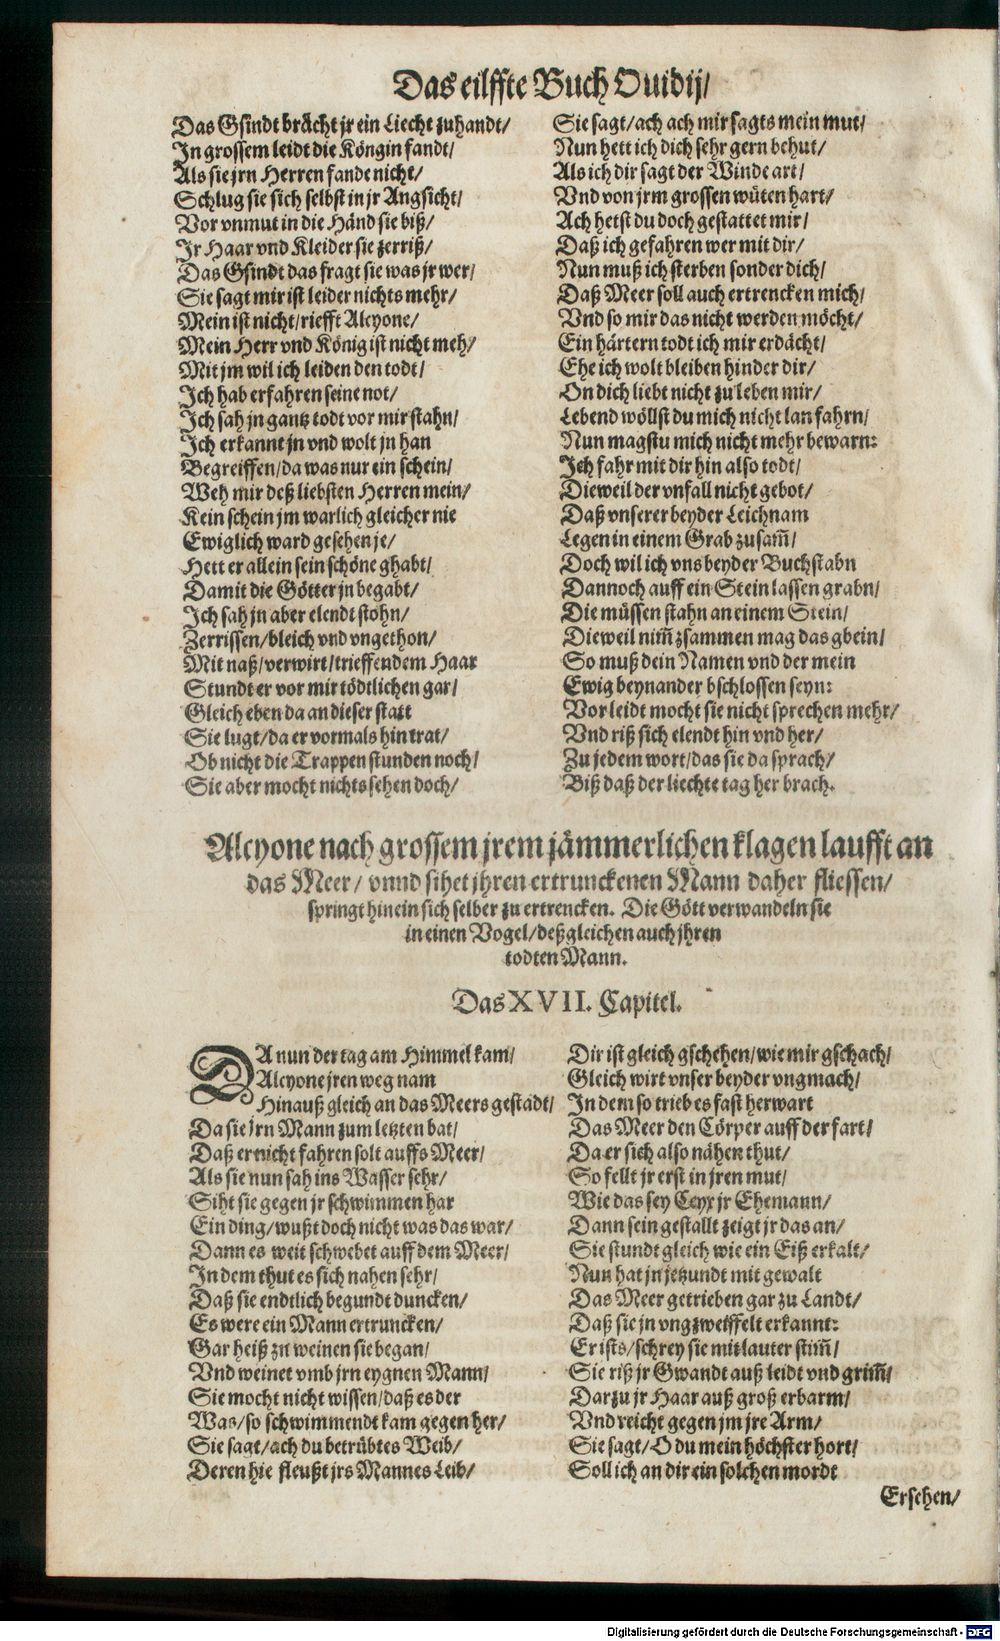 Das eilffte Buch Ouidij/
Das Gsindt brächt jr ein Liecht zuhandt/
In grossem leidt die Köngin fandt/
Als sie jrn Herren fande nicht/
Schlug sie sich selbst in jr Angsicht/
Vor vnmut in die Händ sie biß/
Ir Haar vnd Kleider sie zerriß/
Das Gsindt das fragt sie was jr wer/
Sie sagt mir ist leider nichts mehr/
Mein ist nicht/riefft Alcyone/
Mein Herr vnd König ist nicht meh/
Mit jm wil ich leiden den todt/
Ich hab erfahren seine not/
Ich sah jn gantz todt vor mir stahn/
Ich erkannt jn vnd wolt jn han
Begreiffen/da was nur ein schein/
Weh mir deß liebsten Herren mein/
Kein schein jm warlich gleicher nie
Ewiglich ward gesehen je/
Hett er allein sein schöne ghabt/
Damit die Götter jn begabt/
Ich sah jn aber elendt stohn/
Zerrissen/bleich vnd vngethon/
Mit naß/verwirt/trieffendem Haar
Stundt er vor mir tödtlichen gar/
Gleich eben da an dieser statt
Sie lugt/da er vormals hin trat/
Ob nicht die Trappen stunden noch/
Sie aber mocht nichts sehen doch/
Sie sagt/ach ach mir sagts mein mut/
Nun hett ich dich sehr gern behut/
Als ich dir sagt der Winde art/
Vnd von jrm grossen wüten hart/
Ach hetst du doch gestattet mir/
Daß ich gefahren wer mit dir/
Nun muß ich sterben sonder dich/
Daß Meer soll auch ertrencken mich/
Vnd so mir das nicht werden möcht/
Ein härtern todt ich mir erdächt/
Ehe ich wolt bleiben hinder dir/
On dich liebt nicht zu leben mir/
Lebend wöllst du mich nicht lan fahrn/
Nun magstu mich nicht mehr bewarn:
Ich fahr mit dir hin also todt/
Dieweil der vnfall nicht gebot/
Daß vnserer beyder Leichnam
Legen in einem Grab zusam̃/
Doch wil ich vns beyder Buchstabn
Dannoch auff ein Stein lassen grabn/
Die müssen stahn an einem Stein/
Dieweil nim̃ zsammen mag das gbein/
So muß dein Namen vnd der mein
Ewig beynander bschlossen seyn:
Vor leidt mocht sie nicht sprechen mehr/
Vnd riß sich elendt hin vnd her/
Zu jedem wort/das sie da sprach/
Biß daß der liechte tag her brach.
Alcyone nach grossem jrem jämmerlichen klagen laufft an
das Meer/ vnnd sihet jhren ertrunckenen Mann daher fliessen/
springt hinein sich selber zu ertrencken. Die Gött verwandeln sie
in einen Vogel/deßgleichen auch jhren
todten Mann.
Das XVII. Capitel.
DA nun der tag am Himmel kam/
Alcyone jren weg nam
Hinauß gleich an das Meers gestadt/
Da sie jrn Mann zum letzten bat/
Daß er nicht fahren solt auffs Meer/
Als sie nun sah ins Wasser sehr/
Siht sie gegen jr schwimmen har
Ein ding/wußt doch nicht was das war/
Dann es weit schwebet auff dem Meer/
In dem thut es sich nahen sehr/
Daß sie endtlich begundt duncken/
Es were ein Mann ertruncken/
Gar heiß zu weinen sie began/
Vnd weinet vmb jrn eygnen Mann/
Sie mocht nicht wissen/daß es der
Was/so schwimmendt kam gegen her/
Sie sagt/ach du betrübtes Weib/
Deren hie fleußt jrs Mannes Leib/
Dir ist gleich gschehen/wie mir gschach/
Gleich wirt vnser beyder vngmach/
In dem so trieb es fast herwart
Das Meer den Cörper auff der fart/
Da er sich also nähen thut/
So fellt jr erst in jren mut/
Wie das sey Ceyx jr Ehemann/
Dann sein gestallt zeigt jr das an/
Sie stundt gleich wie ein Eiß erkalt/
Nun hat jn jetzundt mit gewalt
Das Meer getrieben gar zu Landt/
Daß sie jn vngzweiffelt erkannt:
Er ists/schrey sie mit lauter stim̃/
Sie riß jr Gwandt auß leidt vnd grim̃/
Darzu jr Haar auß groß erbarm/
Vnd reicht gegen jm jre Arm/
Sie sagt/O du mein höchster hort/
Soll ich an dir ein solchen mordt
Ersehen/
Digitalisierung gefördert durch die Deutsche Forschungsgemeinschaft - DFG